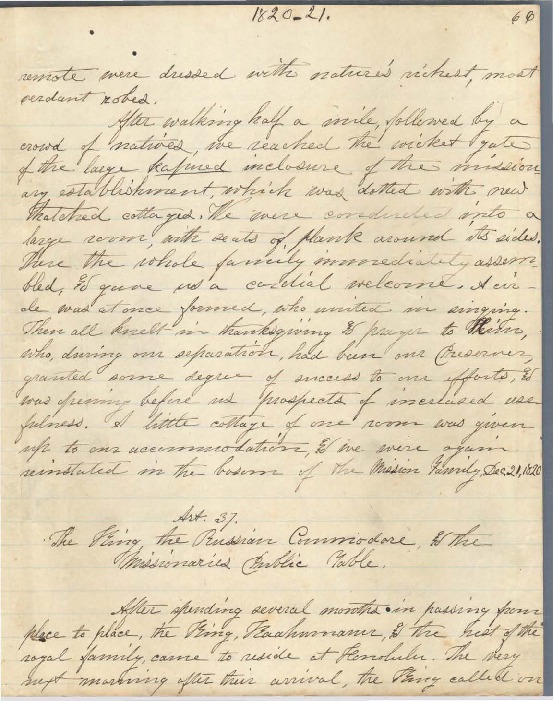 1820-21. 60
remote were dressed with nature's richest, most
verdant robes.
After walking half a mile, followed by a
crowd of natives, we reached the wicket gate
of the large kapued inclosure of the mission
ary establishment which was dotted with new
thatched cottages. We were conducted into a
large room, with seats of plank around its sides.
There the whole family immediately assem-
bled, & gave us a cordial welcome. A cir-
cle was at once formed, who united in singing.
Then all knelt in thanksgiving & prayer to Him,
who, during our separation, had been our Preserver,
granted some degree of success to our efforts, &
was opening before us prospects of increased use
fulness. A little cottage of one room was given
up to our accommodation, & we were again
reinstated in the bosom of the Mission Family, Dec. 21, 1820
Art. 37.
The King, the Russian Commodore, & the
Missionaries Public Table.
After spending several months in passing from
place to place, the King, Kaahumanu, & the rest of the
royal family, came to reside at Honolulu. The very
next morning after their arrival, the King called on